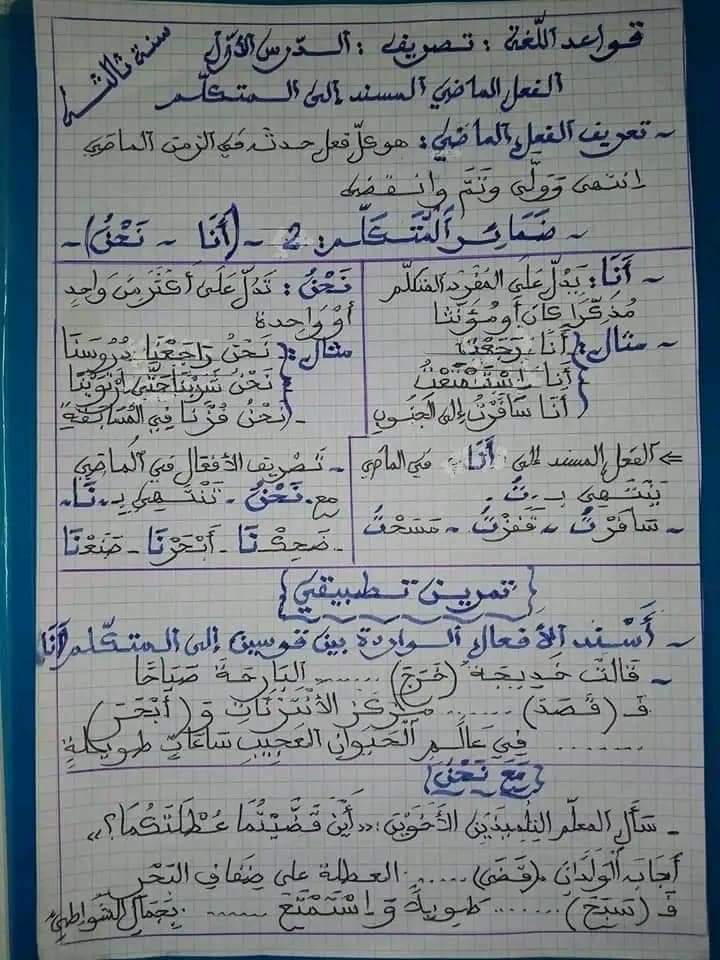 قواعد اللّغة : تصريف : الدّرس الأوّل
سنة ثالثة
الفعل الماضي المسند إلى المتكلّم
~ تعريف الفعل الماضي : هو كلّ فعل حدث في الزمن الماضي
انتهى وَوَلَّى وَتَمَّ وانقضى
~ ضَمَائِر المُتَكَلِّم : 2 ~ (أَنَا ~ نَحْنُ) ~
~ أَنَا : يَدُلّ عَلَى المُفْرَد المتكلّم
مُذَكَّرًا كان أو مُؤَنّثا
~ مثال : أَنَا رَجَعْتُ
أَنَا اسْتَمْتَعْتُ
أَنَا سَافَرْتُ إلى الجَنُوبِ
نَحْنُ : تَدُلّ عَلَى أَكْثَر مِنْ وَاحِدٍ
أو وَاحِدة
مثال : نَحْنُ رَاجَعْنَا دُرُوسَنَا
نَحْنُ شَرِبْنَا حَتَّى ارْتَوَيْنَا
- نَحْنُ فُزْنَا فِي المُسَابَقَةِ
⇐ الفعل المسند إلى أَنَا في الماضي
يَنْتَهِي بـ ـتُ .
~ سَافَرْتُ ~ قَفَزْتُ ~ مَسَحْتُ
- تَصْرِيف الأفعَال فِي المَاضِي
مع نَحْنُ - تَنْتَهِي بِـ - نَا -
- ضَحِكْنَا - أَبْحَرْنَا - صَنَعْنَا
{تمرين تطبيقي}
~ أَسْنِد الأفعال الواردة بين قوسين إلى المتكلّم أَنَا
~ قَالَتْ خَدِيجَة (خَرَجَ) ...... البَارِحَةَ صَبَاحًا
فَـ (قَصَدَ) ...... مَرْكَز الأَنْتَرْنَات وَ (أَبْحَرَ)
...... فِي عَالَمِ الحَيَوانِ العَجِيبِ سَاعَاتٍ طَوِيلَةٍ
{مَعَ نَحْنُ}
- سَأَلَ المعلّم التِلْمِيذَيْنِ الأَخَوَيْنِ : «أَيْنَ قَضَّيْتُمَا عُطْلَتَكُمَا؟»
أجابَ الوَلَدَانِ (قَضَى) ...... العطلة على ضِفَافِ البَحْرِ
فَـ (سَبَحَ) ...... طَوِيلاً وَ اسْتَمْتَعَ ...... بِجَمَالِ الشَّوَاطِئِ